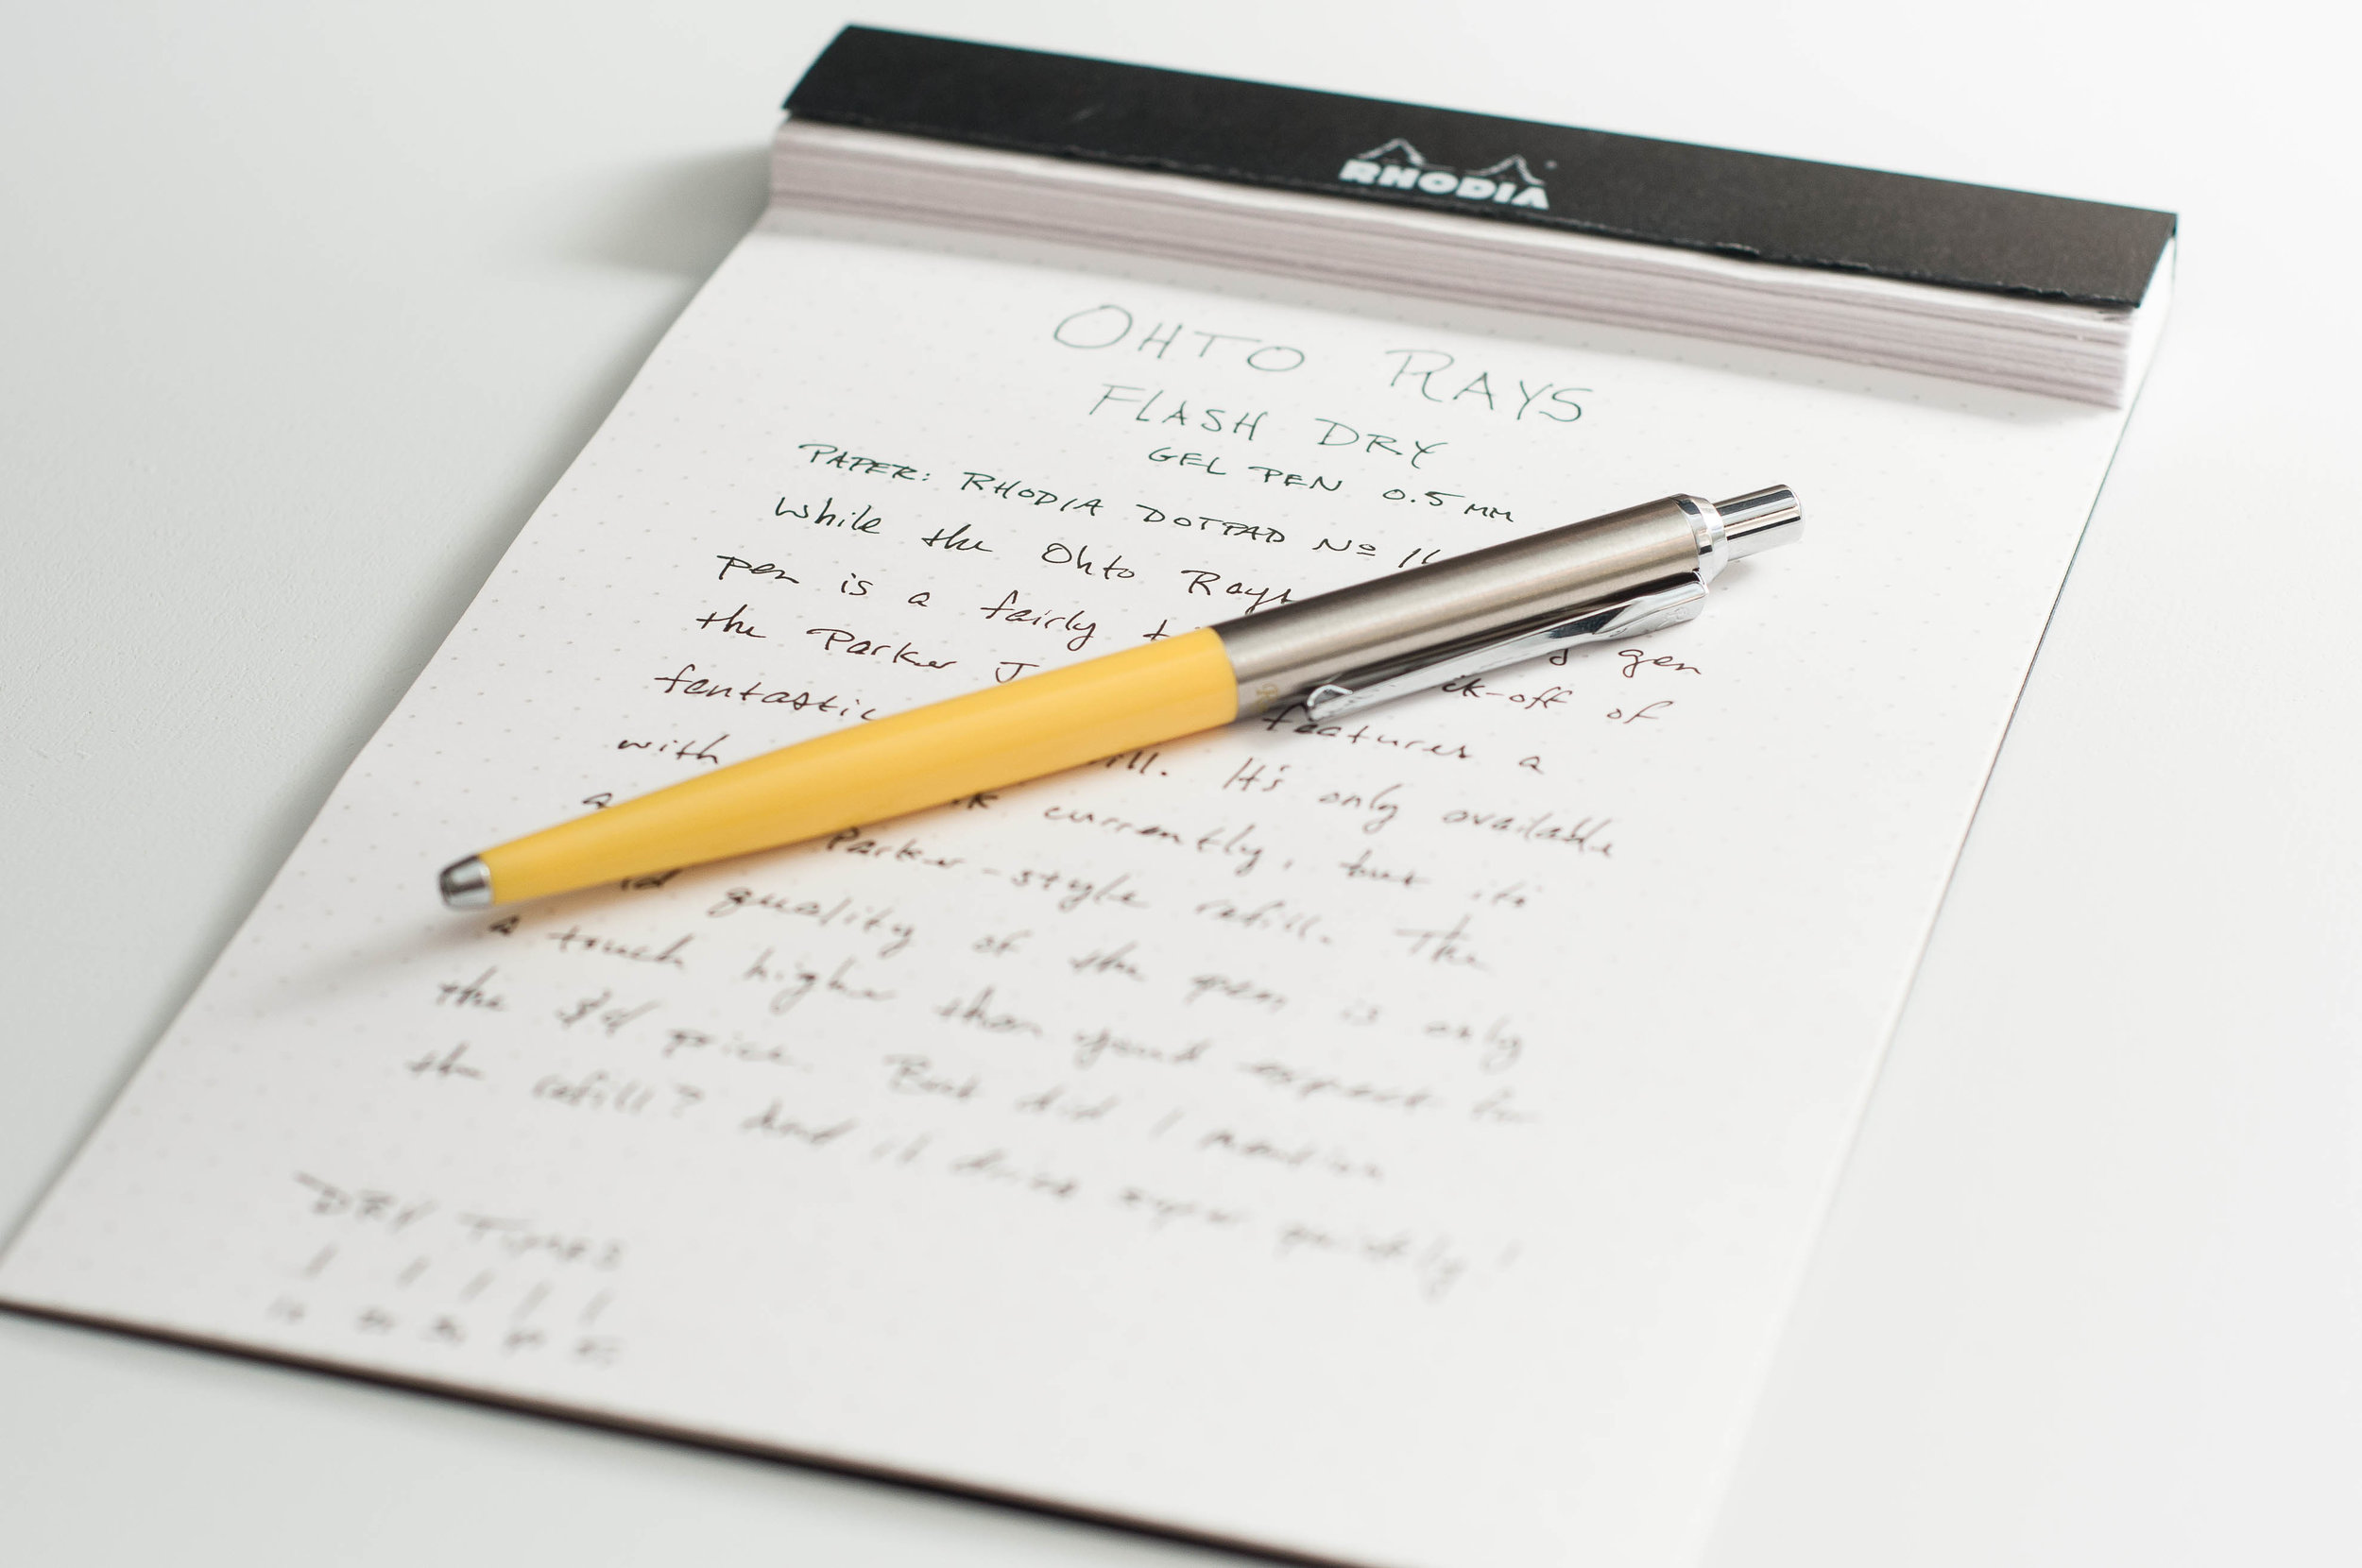 RHODIA
OHTO RAYS
FLASH DRY
GEL PEN 0.5 MM
PAPER: RHODIA DOTPAD Nº
While the Ohto Rays
pen is a fairly of
the Parker features a
fantastic It's only available
with currently, but it's
a Parker-style refill. The
quality of the pen is only
a touch higher than you'd expect for
the $4 price. But did I mention
the refill? And it dries super quickly!
DRY TIMES